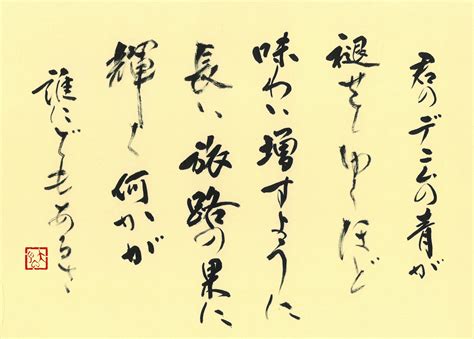 君のデニムの青が
褪せてゆくほど
味わい増すように
長い旅路の果に
輝く何かが
誰にでもあるさ